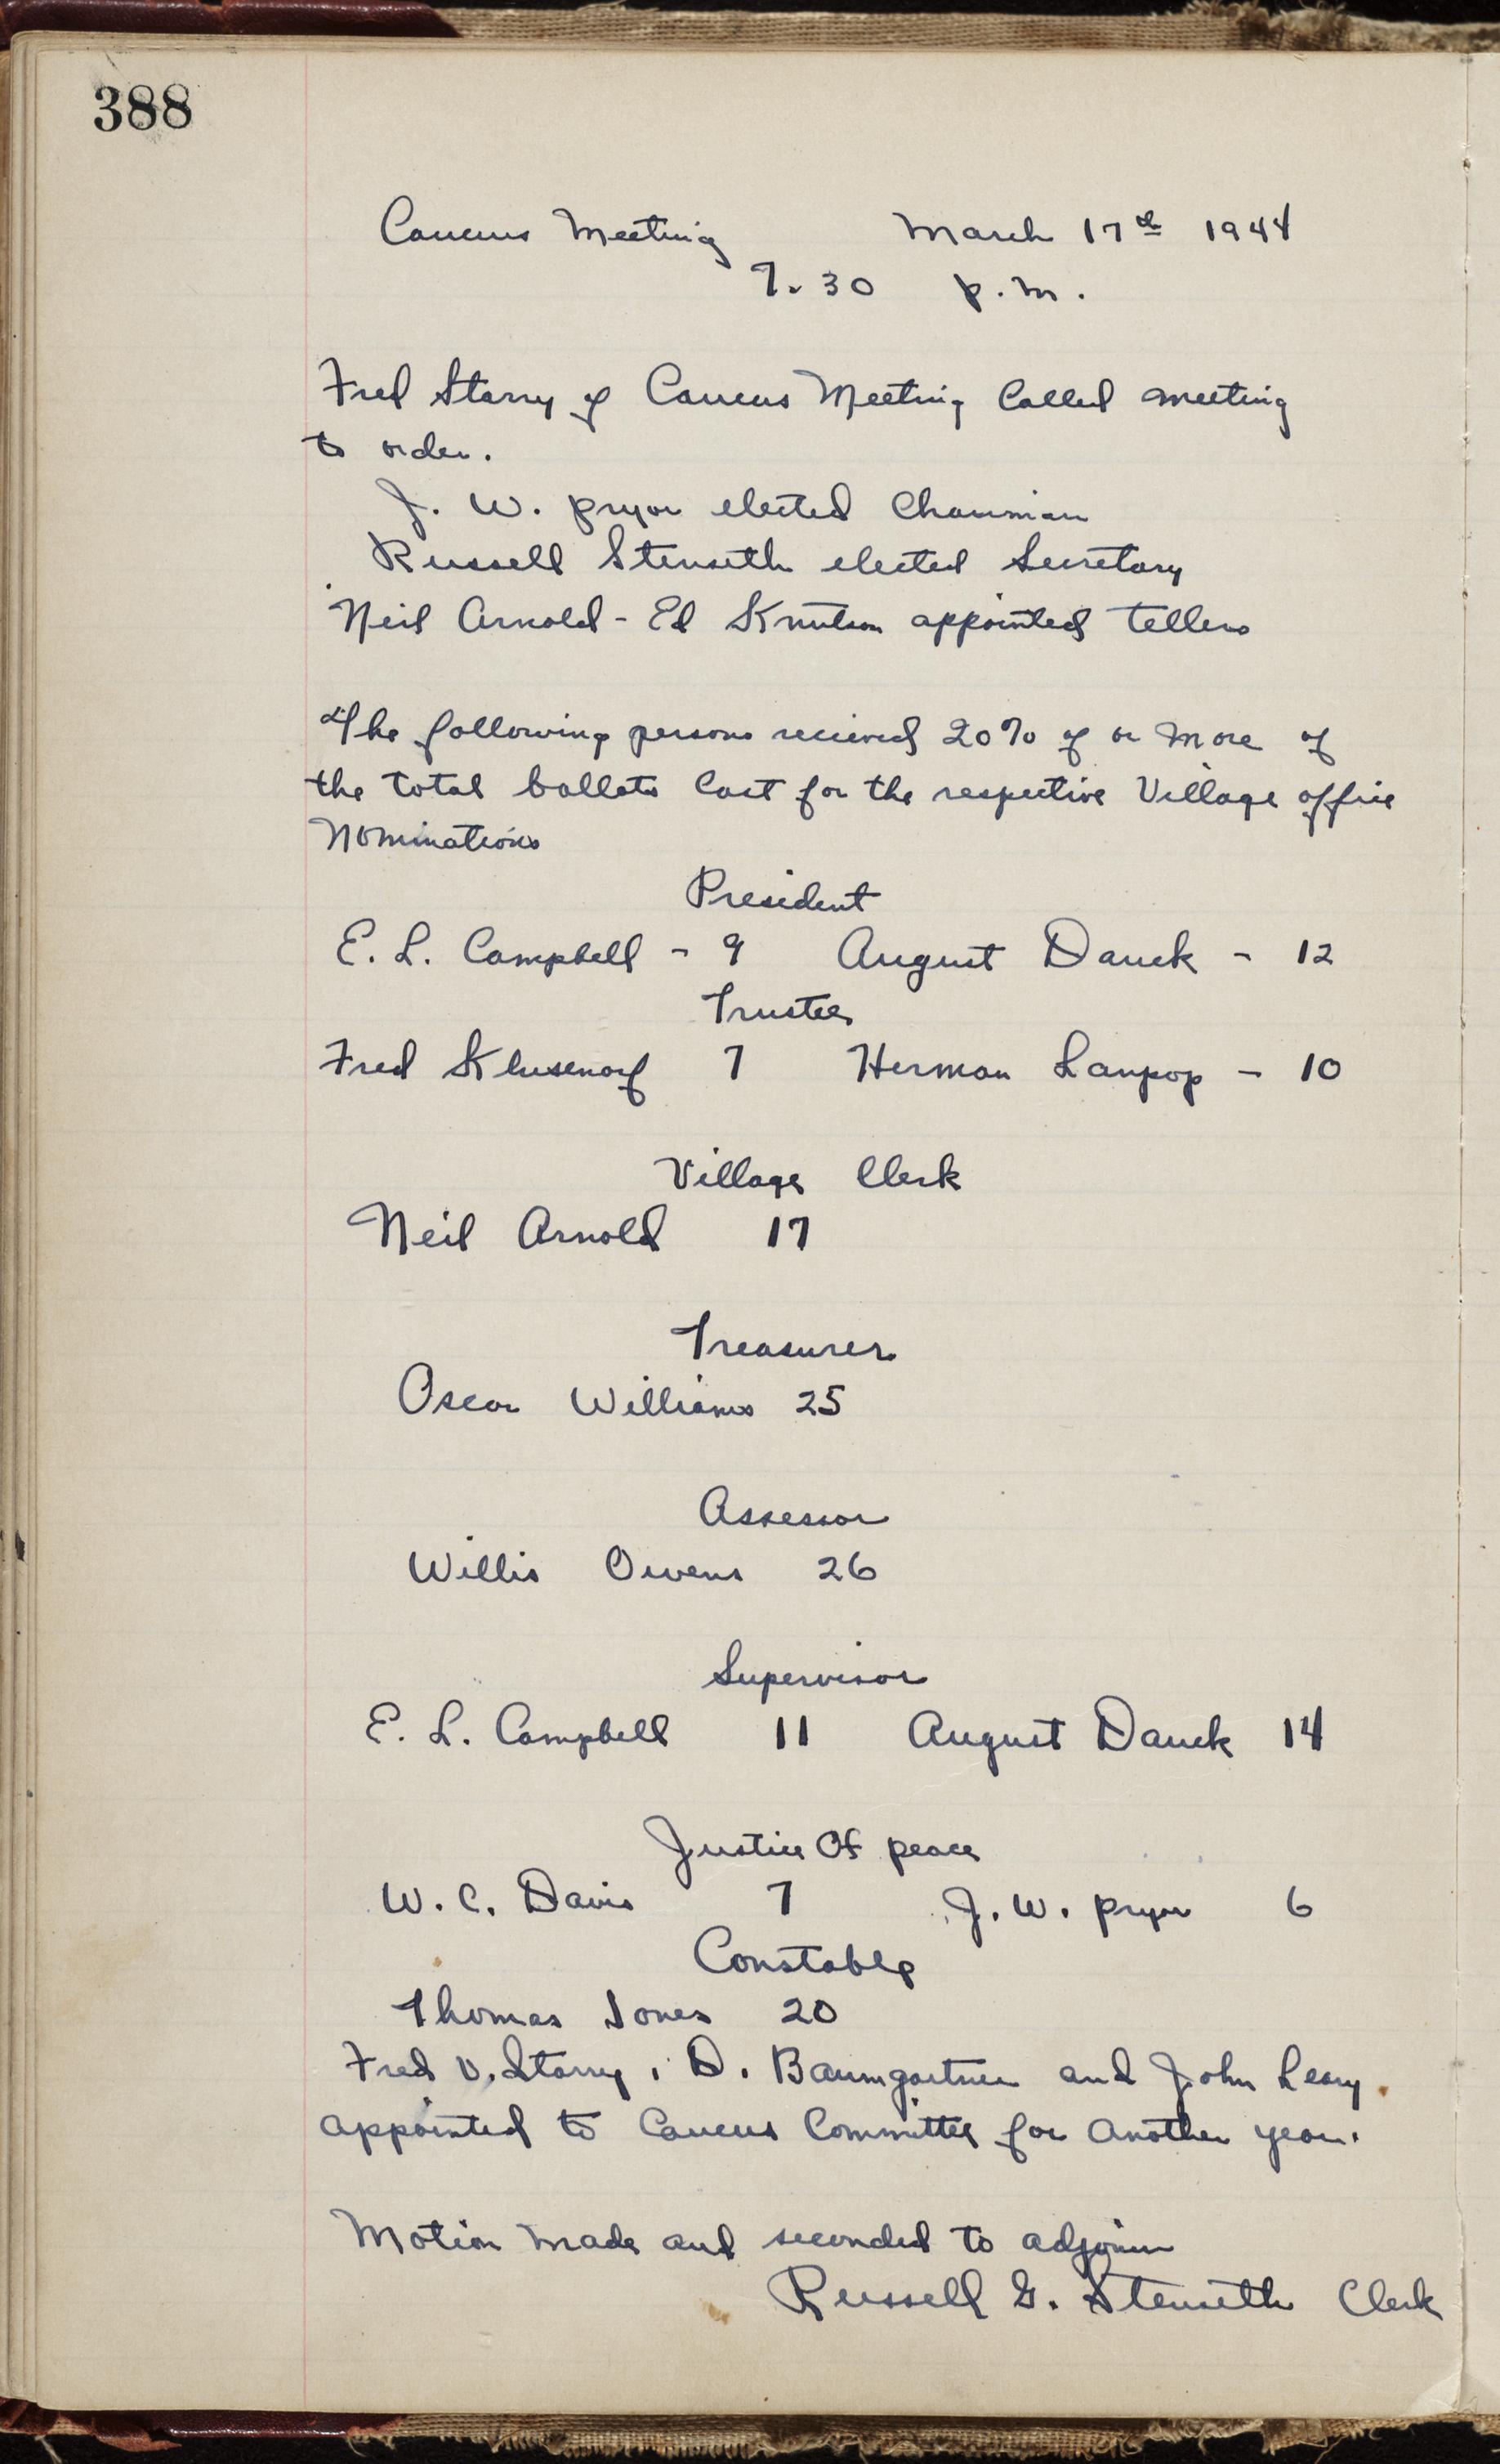 388
Caucus Meeting March 17th 1944
7.30 p.m.
Fred Starry of Caucus Meeting Called meeting
to order.
J. W. Pryor elected Chairman
Russell Stenseth elected Secretary
Neil Arnold - Ed Knutson appointed Tellers
The following persons recieved 20% of or more of
the total ballots Cast for the respective Village office
Nominations
President
E. L. Campbell - 9 August Dauck - 12
Trustee
Fred Klusendorf 7 Herman Laupop - 10
Village Clerk
Neil Arnold 17
Treasurer
Oscar Williams 25
Assessor
Willis Owens 26
Supervisor
E. L. Campbell 11 August Dauck 14
Justice Of peace
W. C. Davis 7 J. W. Pryor 6
Constable
Thomas Jones 20
Fred V. Starry, D. Baumgartner and John Leary
appointed to Caucus Committee for Another year.
Motion Made and seconded to adjourn
Russell G. Stenseth Clerk